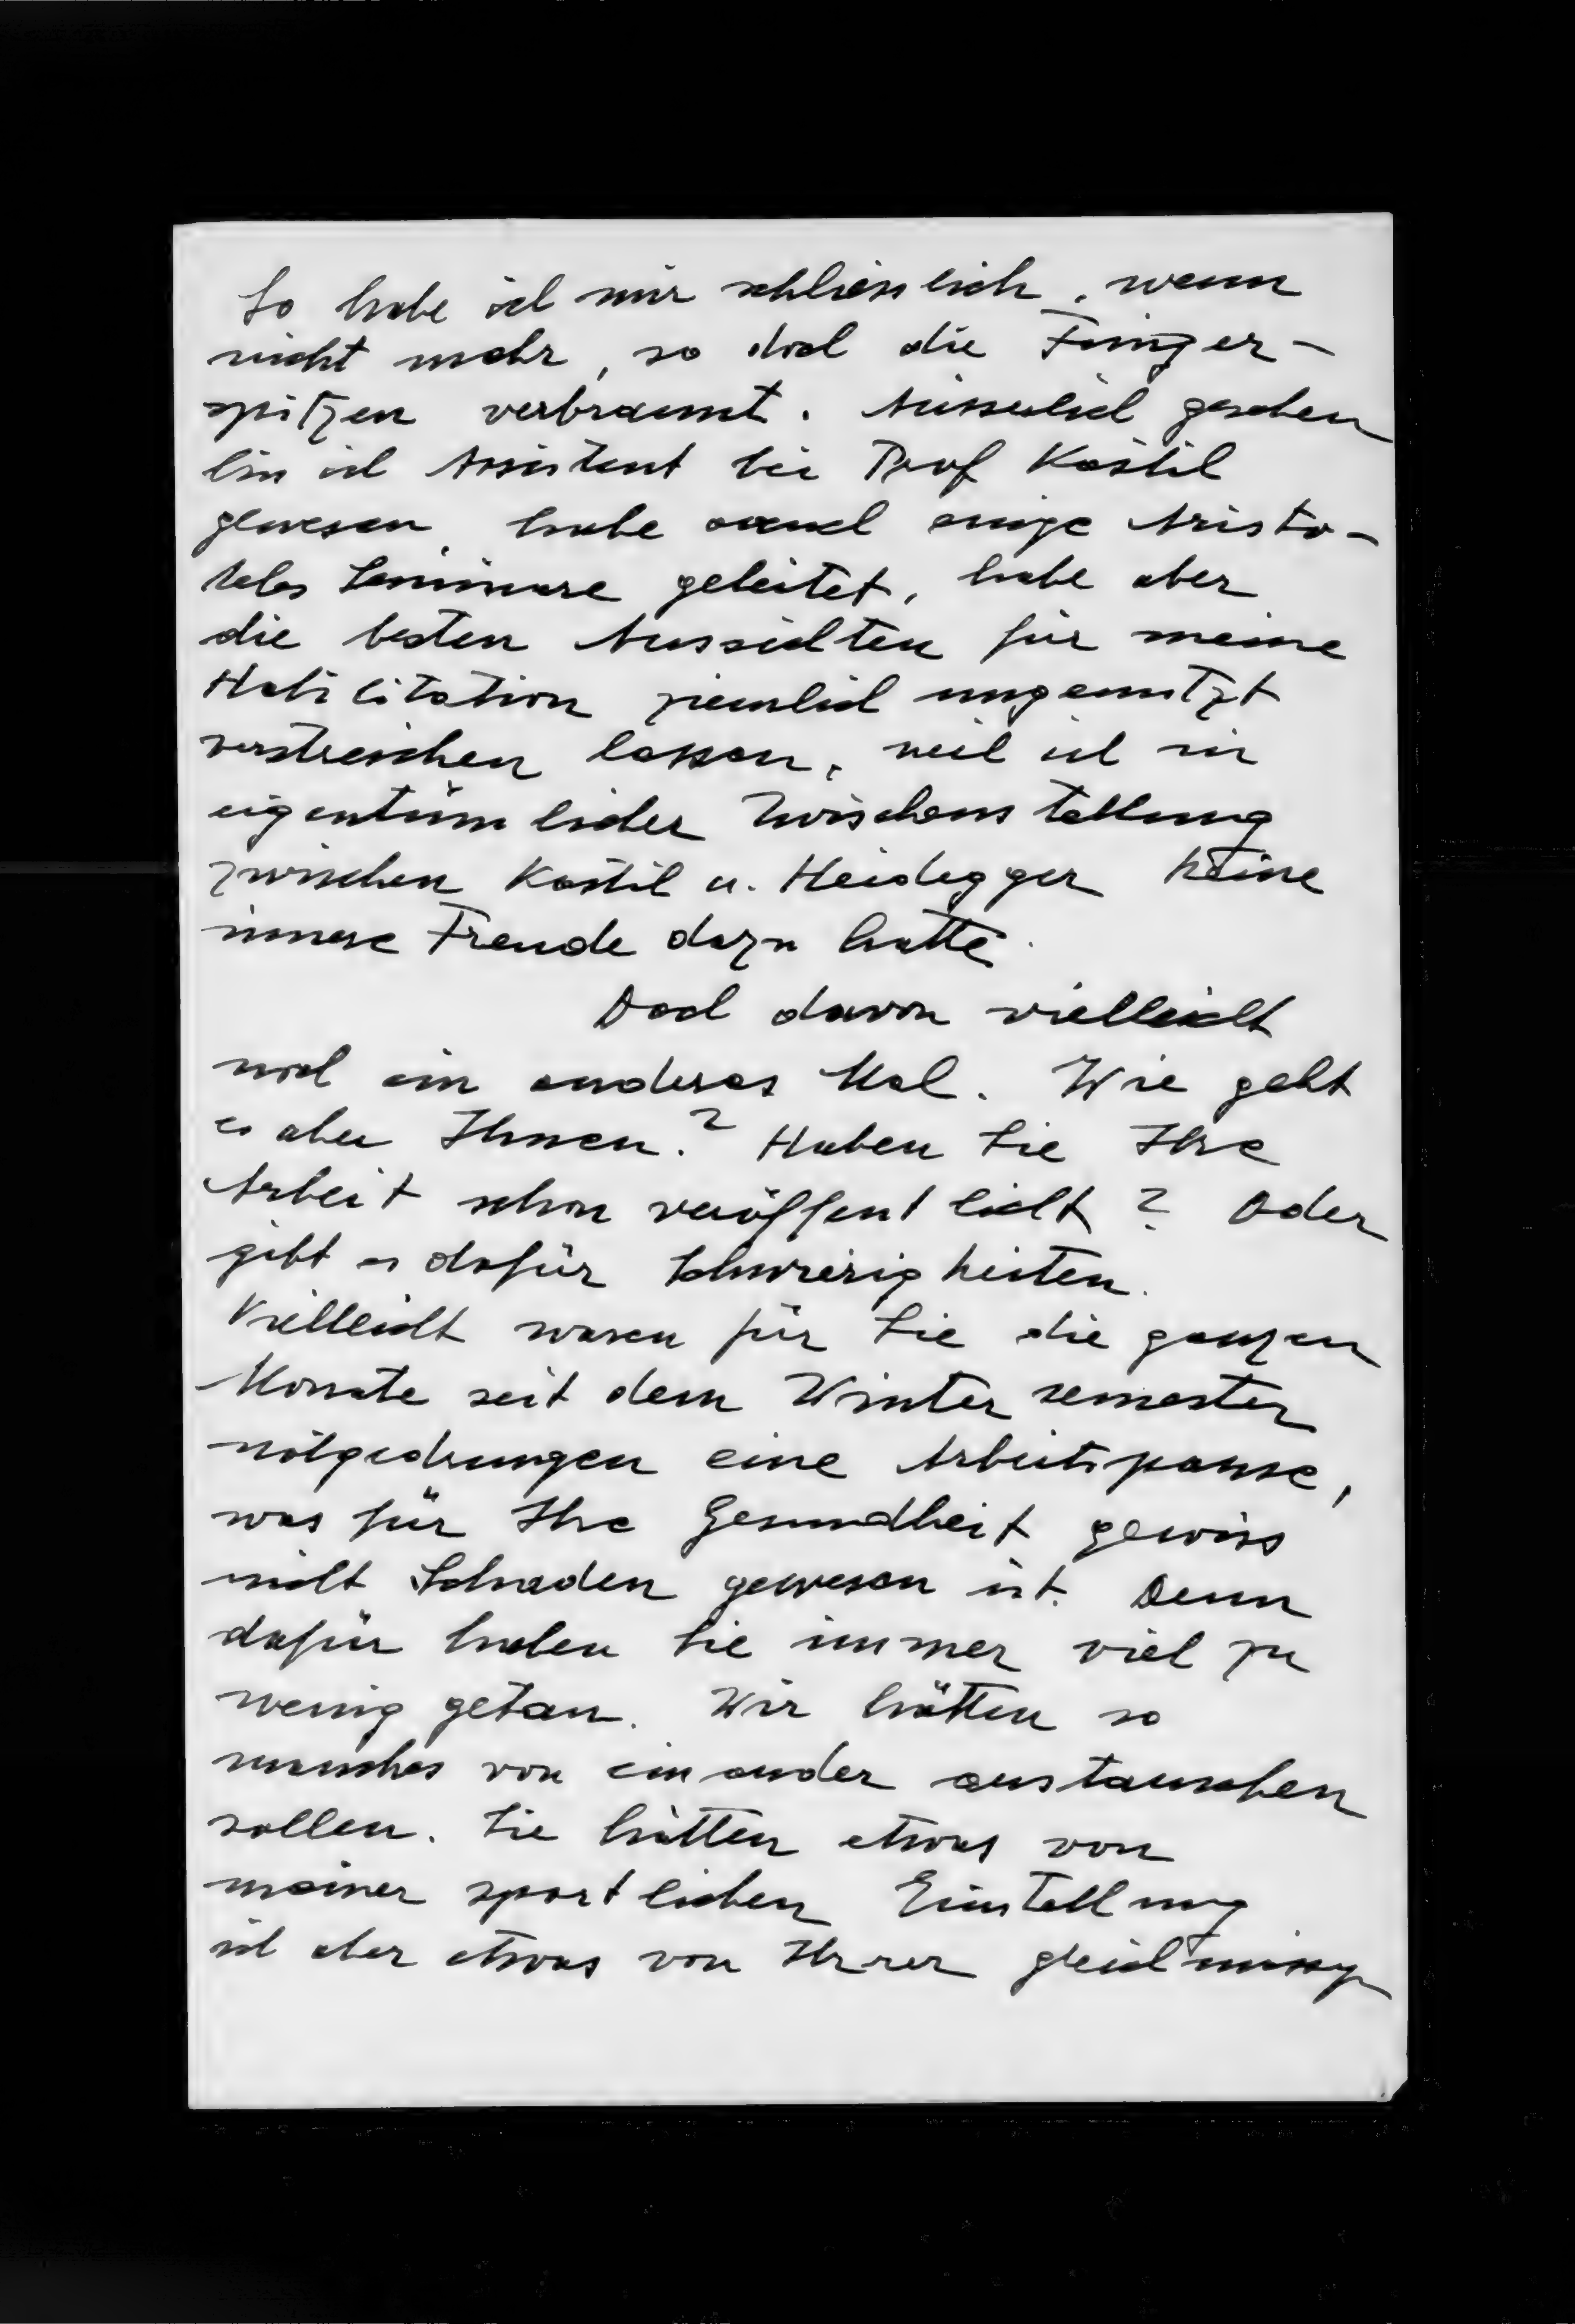 So habe ich mir schliesslich, wenn
nicht mehr, so doch die Finger-
spitzen verbrannt. Äusserlich gesehen
bin ich Assistent bei Prof Kastil
gewesen, habe auch einige Aristo-
teles Seminare geleitet, habe aber
die besten Aussichten für meine
Habilitation ziemlich ungenutzt
verstreichen lassen, weil ich in
eigentümlicher Zwischenstellung
zwischen Kastil u. Heidegger keine
innere Freude dazu hatte.
Doch davon vielleicht
noch ein anderes Mal. Wie geht
es aber Ihnen? Haben Sie Ihre
Arbeit schon veröffentlicht? Oder
gibt es dafür Schwierigkeiten.
Vielleicht waren für Sie die ganzen
Monate seit dem Wintersemester
notgedrungen eine Arbeitspause,
was für Ihre Gesundheit gewiss
nicht Schaden gewesen ist. Denn
dafür haben Sie immer viel zu
wenig getan. Wir hätten so
manches von einander austauschen
sollen. Sie hätten etwas von
meiner sportlichen Einstellung
ich aber etwas von Ihrer